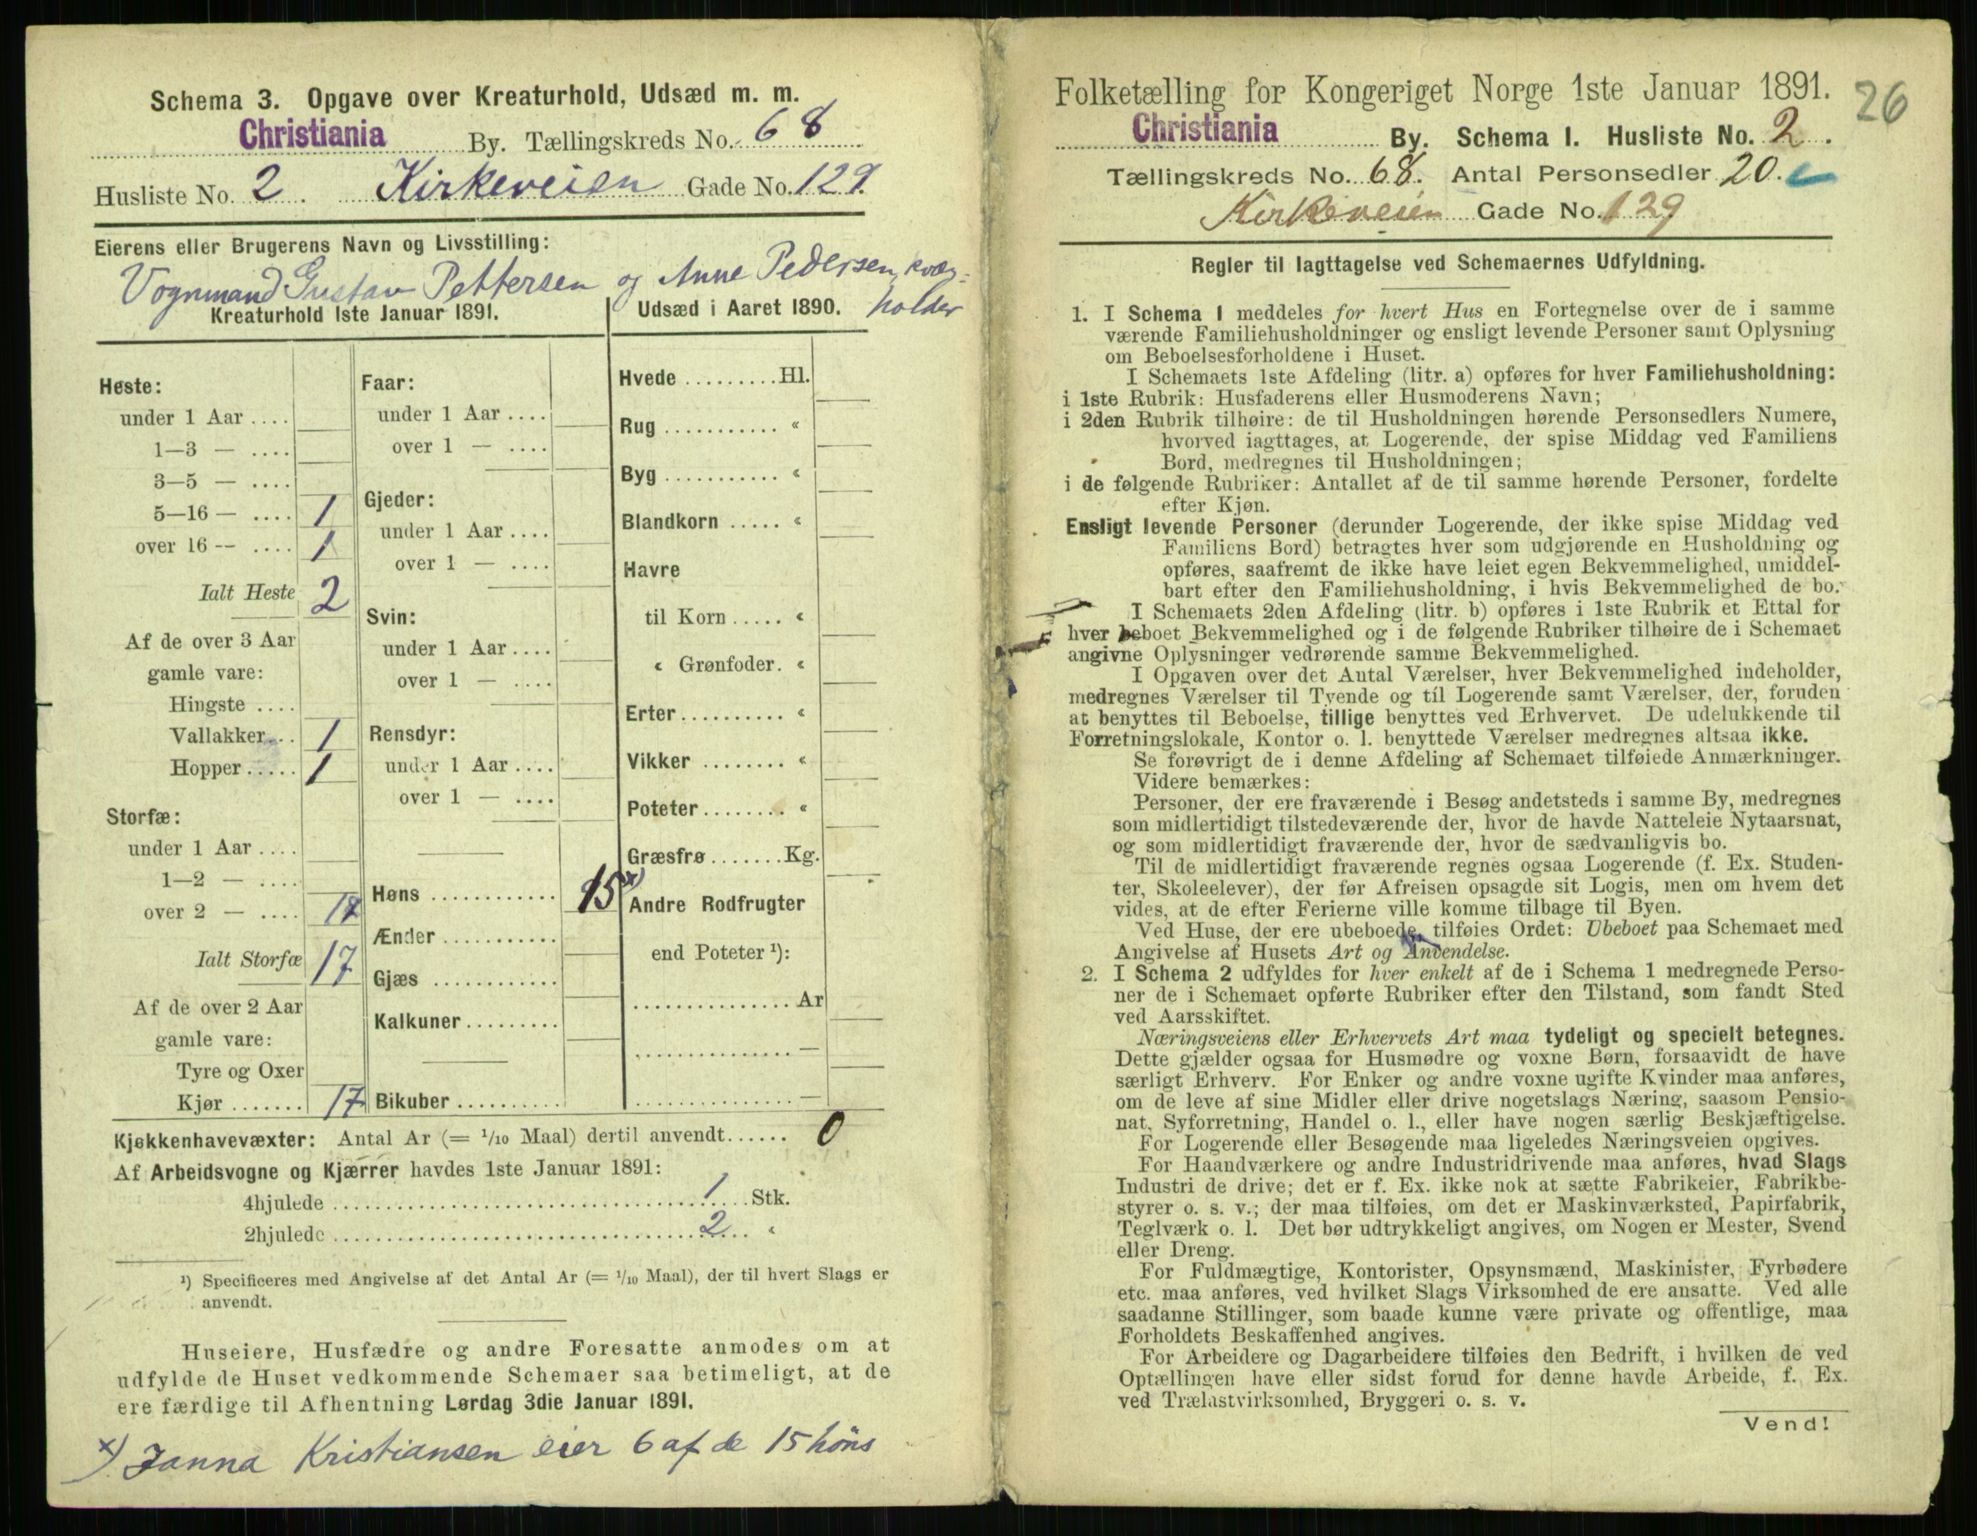 Schema 3. Opgave over Kreaturhold, Udsæd m. m.
Christiania By. Tællingskreds No. 68
Husliste No. 2. Kirkeveien Gade No. 129
Eierens eller Brugerens Navn og Livsstilling:
Vognmand Gustav Pettersen og Anne Pedersen, kvæg-
holder
Kreaturhold 1ste Januar 1891.
Heste:
under 1 Aar ....
1—3 — ....
3—5 — ....
5—16 — .... 1
over 16 — .... 1
Ialt Heste 2
Af de over 3 Aar
gamle vare:
Hingste ....
Vallakker... 1
Hopper..... 1
Storfæ:
under 1 Aar ....
1—2 — ....
over 2 — .... 17
Ialt Storfæ 17
Af de over 2 Aar
gamle vare:
Tyre og Oxer
Kjør ....... 17
Faar:
under 1 Aar ....
over 1 — ....
Gjeder:
under 1 Aar ....
over 1 — ....
Svin:
under 1 Aar ....
over 1 — ....
Rensdyr:
under 1 Aar ....
over 1 — ....
Høns ............ 15 x)
Ænder ...........
Gjæs ............
Kalkuner.........
Bikuber ..........
Udsæd i Aaret 1890.
Hvede .........Hl.
Rug ........... «
Byg ........... «
Blandkorn ..... «
Havre
til Korn ..... «
« Grønfoder. «
Erter.......... «
Vikker ........ «
Poteter........ «
Græsfrø .......Kg.
Andre Rodfrugter
end Poteter ¹):
............... Ar
............... —
............... —
Kjøkkenhavevæxter: Antal Ar (= 1/10 Maal) dertil anvendt...... 0
Af Arbeidsvogne og Kjærrer havdes 1ste Januar 1891:
4hjulede ........ 1 .... Stk.
2hjulede ........ 2 .... «
¹) Specificeres med Angivelse af det Antal Ar (= 1/10 Maal), der til hvert Slags er
anvendt.
Huseiere, Husfædre og andre Foresatte anmodes om at
udfylde de Huset vedkommende Schemaer saa betimeligt, at de
ere færdige til Afhentning Lørdag 3die Januar 1891.
x) Janna Kristiansen eier 6 af de 15 höns
Folketælling for Kongeriget Norge 1ste Januar 1891. 26
Christiania By. Schema I. Husliste No. 2.
Tællingskreds No. 68. Antal Personsedler 20.
Kirkeveien Gade No. 129
Regler til Iagttagelse ved Schemaernes Udfyldning.
1. I Schema I meddeles for hvert Hus en Fortegnelse over de i samme
værende Familiehusholdninger og ensligt levende Personer samt Oplysning
om Beboelsesforholdene i Huset.
I Schemaets 1ste Afdeling (litr. a) opføres for hver Familiehusholdning:
i 1ste Rubrik: Husfaderens eller Husmoderens Navn;
i 2den Rubrik tilhøire: de til Husholdningen hørende Personsedlers Numere,
hvorved iagttages, at Logerende, der spise Middag ved Familiens
Bord, medregnes til Husholdningen;
i de følgende Rubriker: Antallet af de til samme hørende Personer, fordelte
efter Kjøn.
Ensligt levende Personer (derunder Logerende, der ikke spise Middag ved
Familiens Bord) betragtes hver som udgjørende en Husholdning og
opføres, saafremt de ikke have leiet egen Bekvemmelighed, umiddel-
bart efter den Familiehusholdning, i hvis Bekvemmelighed de bo.
I Schemaets 2den Afdeling (litr. b) opføres i 1ste Rubrik et Ettal for
hver beboet Bekvemmelighed og i de følgende Rubriker tilhøire de i Schemaet
angivne Oplysninger vedrørende samme Bekvemmelighed.
I Opgaven over det Antal Værelser, hver Bekvemmelighed indeholder,
medregnes Værelser til Tyende og til Logerende samt Værelser, der, foruden
at benyttes til Beboelse, tillige benyttes ved Erhvervet. De udelukkende til
Forretningslokale, Kontor o. l. benyttede Værelser medregnes altsaa ikke.
Se forøvrigt de i denne Afdeling af Schemaet tilføiede Anmærkninger.
Videre bemærkes:
Personer, der ere fraværende i Besøg andetsteds i samme By, medregnes
som midlertidigt tilstedeværende der, hvor de havde Natteleie Nytaarsnat,
og som midlertidigt fraværende der, hvor de sædvanligvis bo.
Til de midlertidigt fraværende regnes ogsaa Logerende (f. Ex. Studen-
ter, Skoleelever), der før Afreisen opsagde sit Logis, men om hvem det
vides, at de efter Ferierne ville komme tilbage til Byen.
Ved Huse, der ere ubeboede, tilføies Ordet: Ubeboet paa Schemaet med
Angivelse af Husets Art og Anvendelse.
2. I Schema 2 udfyldes for hver enkelt af de i Schema 1 medregnede Perso-
ner de i Schemaet opførte Rubriker efter den Tilstand, som fandt Sted
ved Aarsskiftet.
Næringsveiens eller Erhvervets Art maa tydeligt og specielt betegnes.
Dette gjælder ogsaa for Husmødre og voxne Børn, forsaavidt de have
særligt Erhverv. For Enker og andre voxne ugifte Kvinder maa anføres,
om de leve af sine Midler eller drive nogetslags Næring, saasom Pensio-
nat, Syforretning, Handel o. l., eller have nogen særlig Beskjæftigelse.
For Logerende eller Besøgende maa ligeledes Næringsveien opgives.
For Haandværkere og andre Industridrivende maa anføres, hvad Slags
Industri de drive; det er f. Ex. ikke nok at sætte Fabrikeier, Fabrikbe-
styrer o. s. v.; der maa tilføies, om det er Maskinværksted, Papirfabrik,
Teglværk o. l. Det bør udtrykkeligt angives, om Nogen er Mester, Svend
eller Dreng.
For Fuldmægtige, Kontorister, Opsynsmænd, Maskinister, Fyrbødere
etc. maa anføres, ved hvilket Slags Virksomhed de ere ansatte. Ved alle
saadanne Stillinger, som baade kunne være private og offentlige, maa
Forholdets Beskaffenhed angives.
For Arbeidere og Dagarbeidere tilføies den Bedrift, i hvilken de ved
Optællingen have eller sidst forud for denne havde Arbeide, f. Ex.
ved Trælastvirksomhed, Bryggeri o. s. v.
Vend!